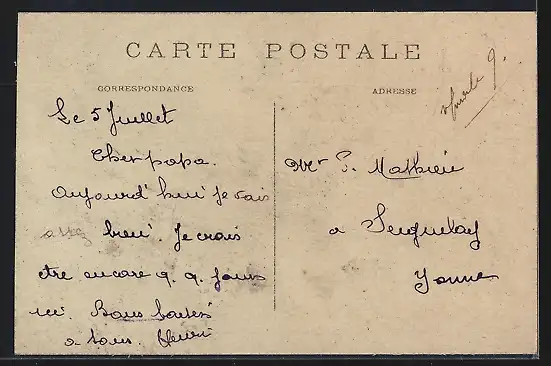 CARTE POSTALE
CORRESPONDANCE
ADRESSE
Le 5 Juillet
Cher papa.
Aujourd'hui je vais
assez bien. Je crois
etre encore q. q. jours
ici. Bons baisers
a tous. Henri
Mr P. Mathieu
a Seignelay
Yonne